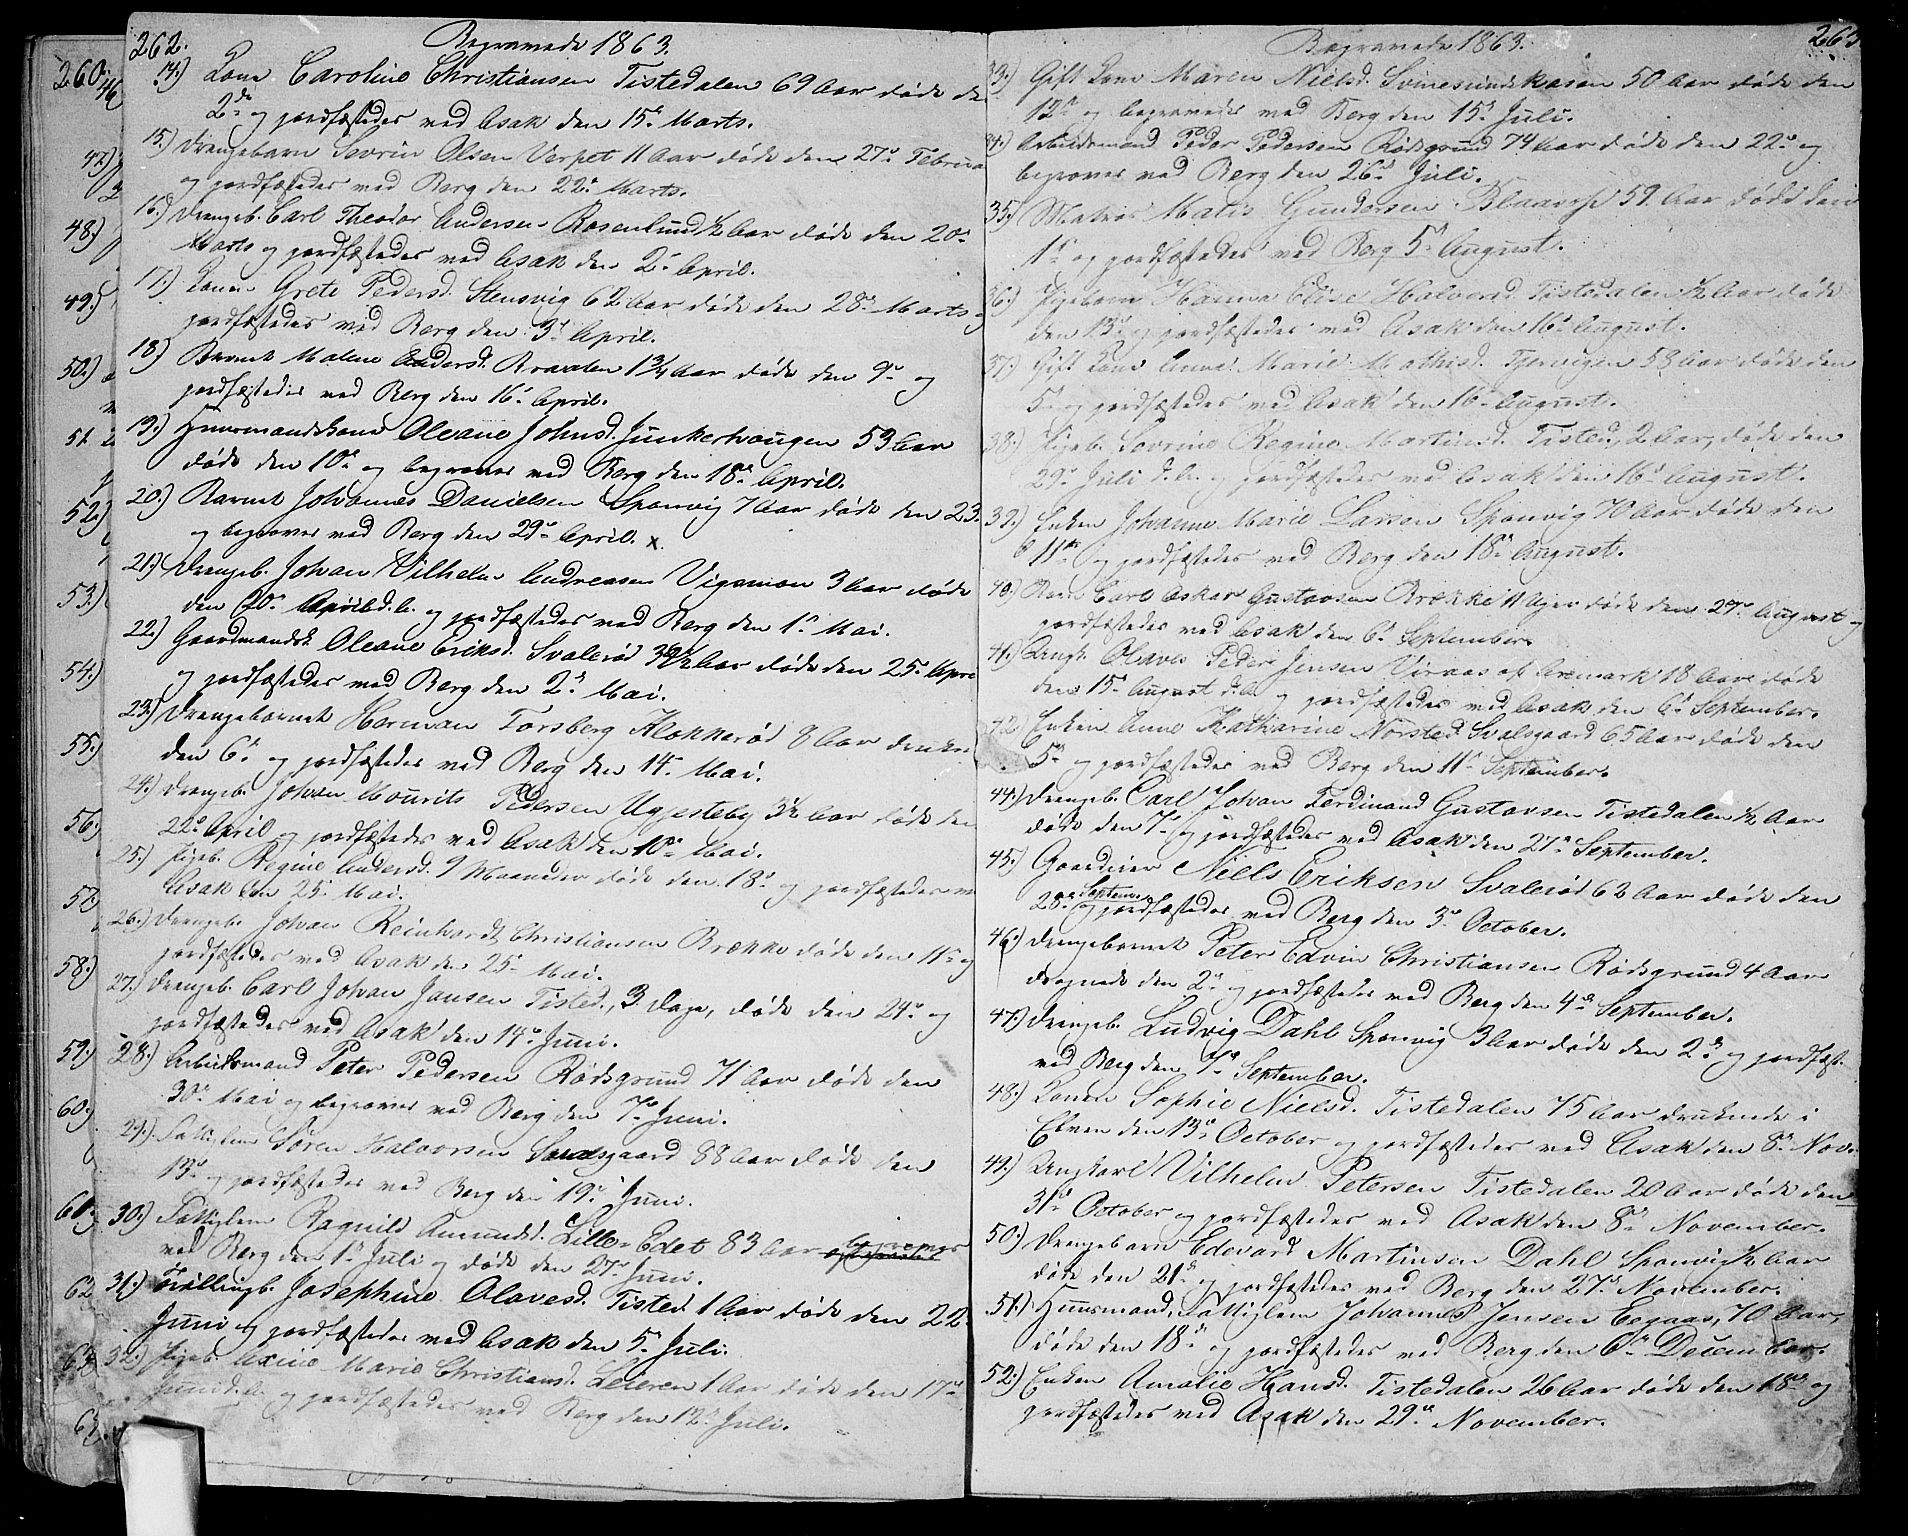 262.
Begravede 1863.
14.) Kone Caroline Christiansen Tistedalen 69 Aar døde den
2de og jordfæstedes ved Asak den 15de Marts.
15.) Drengebarn Sevrin Olsen Verpet 11 Aar døde den 27de Februar
og jordfæstedes ved Berg den 22de Marts.
16.) Drengeb. Carl Theodor Andersen Rosenlund ½ Aar døde den 20de
Marts og jordfæstedes ved Asak den 2de April.
17.) Konen Grete Pedersd. Stensvig 62 Aar døde den 28de Marts
jordfæstedes ved Berg den 3de April.
18.) Barnet Malene Andersd. Braaten 1¾ Aar døde den 9de og
jordfæstedes ved Berg den 16de April.
19.) Huusmandskone Oleane Johnsd. Junkerhougen 53 Aar
døde den 10de og begraves ved Berg den 18de April.
20.) Barnet Johannes Danielsen Sponvig 7 Aar døde den 23.
og begraves ved Berg den 29de April. x
21.) Drengeb. Johan Vilhelm Andreasen Vigamon 3 Aar døde
den 20de April d.A. og jordfæstedes ved Berg den 1de Mai.
22.) Gaardmandsk. Oleane Eriksd. Svalerød Aar døde den 25de Apri
og jordfæstedes ved Berg den 2de Mai.
23.) Drengebarnet Herman Torsberg Klokkerød 8 Aar
den 6te og jordfæstedes ved Berg den 14de Mai.
24.) Drengeb. Johan Mourits Pedersen Ugjesteby 3½ Aar døde den
22de April og jordfæstedes ved Asak den 10de Mai.
25.) Pigeb. Regine Andersd. 9 Maaneder døde den 18de og jordfæstedes v
Asak den 25de Mai.
26.) Drengeb. Johan Reinhardt Christiansen Brække døde den 11te og
jordfæstedes ved Asak den 25de Mai.
27.) Drengeb. Carl Johan Jansen Tisted., 3 Dage, døde den 24de og
jordfæstedes ved Asak den 14de Juni.
28.) Arbeidsmand Peter Pedersen Rødsgrund 71 Aar døde den
30de Mai og begraves ved Berg den 7de Juni.
29.) Fattiglem Søren Halvorsen 88 Aar døde den
13de og jordfæstedes ved Berg den 19de Juni.
30.) Fattiglem Ragnild Amundsd. Lille-Edet 83 Aar begraves
ved Berg den 1de Juli og døde den 27de Juni.
31.) Tvillingb. Josephine Olavesd. Tisted. 1 Aar døde den 22de
Juni og jordfæstedes ved Asak den 5de Juli.
32.) Pigeb. Axine Marie Christiansd. Leieren 1 Aar døde den 17de
Juni d.A. og jordfæstedes ved Berg den 12de Juli.
260.
46
47.)
48.)
49.)
50.)
51
52.)
53.)
54.)
55.)
56.
57.
58.)
59.)
60.)
60.
62
63
6
263
Begravede 1863.
33.) Gift Kone Maren Nielsd. Svinesundskasen 50 Aar døde den
12te og begravedes ved Berg den 15de Juli.
34.) Arbeidsmand Peder Pedersen Rødsgrund 74 Aar døde den 22de og
begraves ved Berg den 26de Juli.
35.) Matros Matis Gundersen 59 Aar døde den
1de og jordfæstedes ved Berg 5te August.
36.) Pigebarn Hanna Elise Halvorsd. Tistedalen ½ Aar døde
den 13de og jordfæstedes ved Asak den 16de August.
37.) Gift Kone Anna Marie Mathisd. Tjervigen 53 Aar døde den
5te og jordfæstedes ved Asak den 16de August.
38.) Pigeb. Sevrine Regine Martinsd. Tisted., 2 Aar, døde den
29de Juli d.A. og jordfæstedes ved Asak den 16de August.
39.) Enken Johanne Marie Larsen Sponvig 70 Aar døde den
11te og jordfæstedes ved Berg den 18de August.
40.) Barn Carl Askar Gustavsen Brække 11 Uger døde den 27de August og
jordfæstedes ved Asak den 6te September.
41.) Ungk. Olaves Peder Jensen Viraas af Aremark 18 Aar døde
den 15de August d.A. og jordfæstedes ved Asak den 6te September.
42.) Enken Anne Katharine Norsted Svalsgaard 65 Aar døde den
5te og jordfæstedes ved Berg den 11te September.
44.) Drengeb. Carl Johan Ferdinand Gustavsen Tistedalen ½ Aar
døde den 7de og jordfæstedes ved Asak den 27de September.
45.) Gaardeier Niels Eriksen Svalerød 62 Aar døde den
28de September og jordfæstedes ved Berg den 3de October.
46.) Drengebarnet Peter Edvin Christiansen Rødsgrund 4 Aar
druknede den 2de og jordfæstedes ved Berg den 4de September.
47.) Drengeb. Ludvig Dahl Sponvig 3 Aar døde den 2de og jordfæst.
ved Berg den 7de September.
48.) Konen Sophie Nielsd. Tistedalen 75 Aar druknede i
Elven den 13de October og jordfæstedes ved Asak den 8de Nov.
49.) Ungkarl Vilhelm Petersen Tistedalen 20 Aar døde den
31de October og jordfæstedes ved Asak den 8de November.
50.) Drengebarn Edevard Martinsen Dahl Sponvig ½ Aar
døde den 21de og jordfæstedes ved Berg den 27de November.
51.) Huusmand, Fattiglem Johannes Jensen Eegaas, 70 Aar,
døde den 18de og jordfæstedes ved Berg den 6te December.
52.) Enken Amalie Hansd. Tistedalen 26 Aar døde den 18de og
jordfæstedes ved Asak den 29de November.